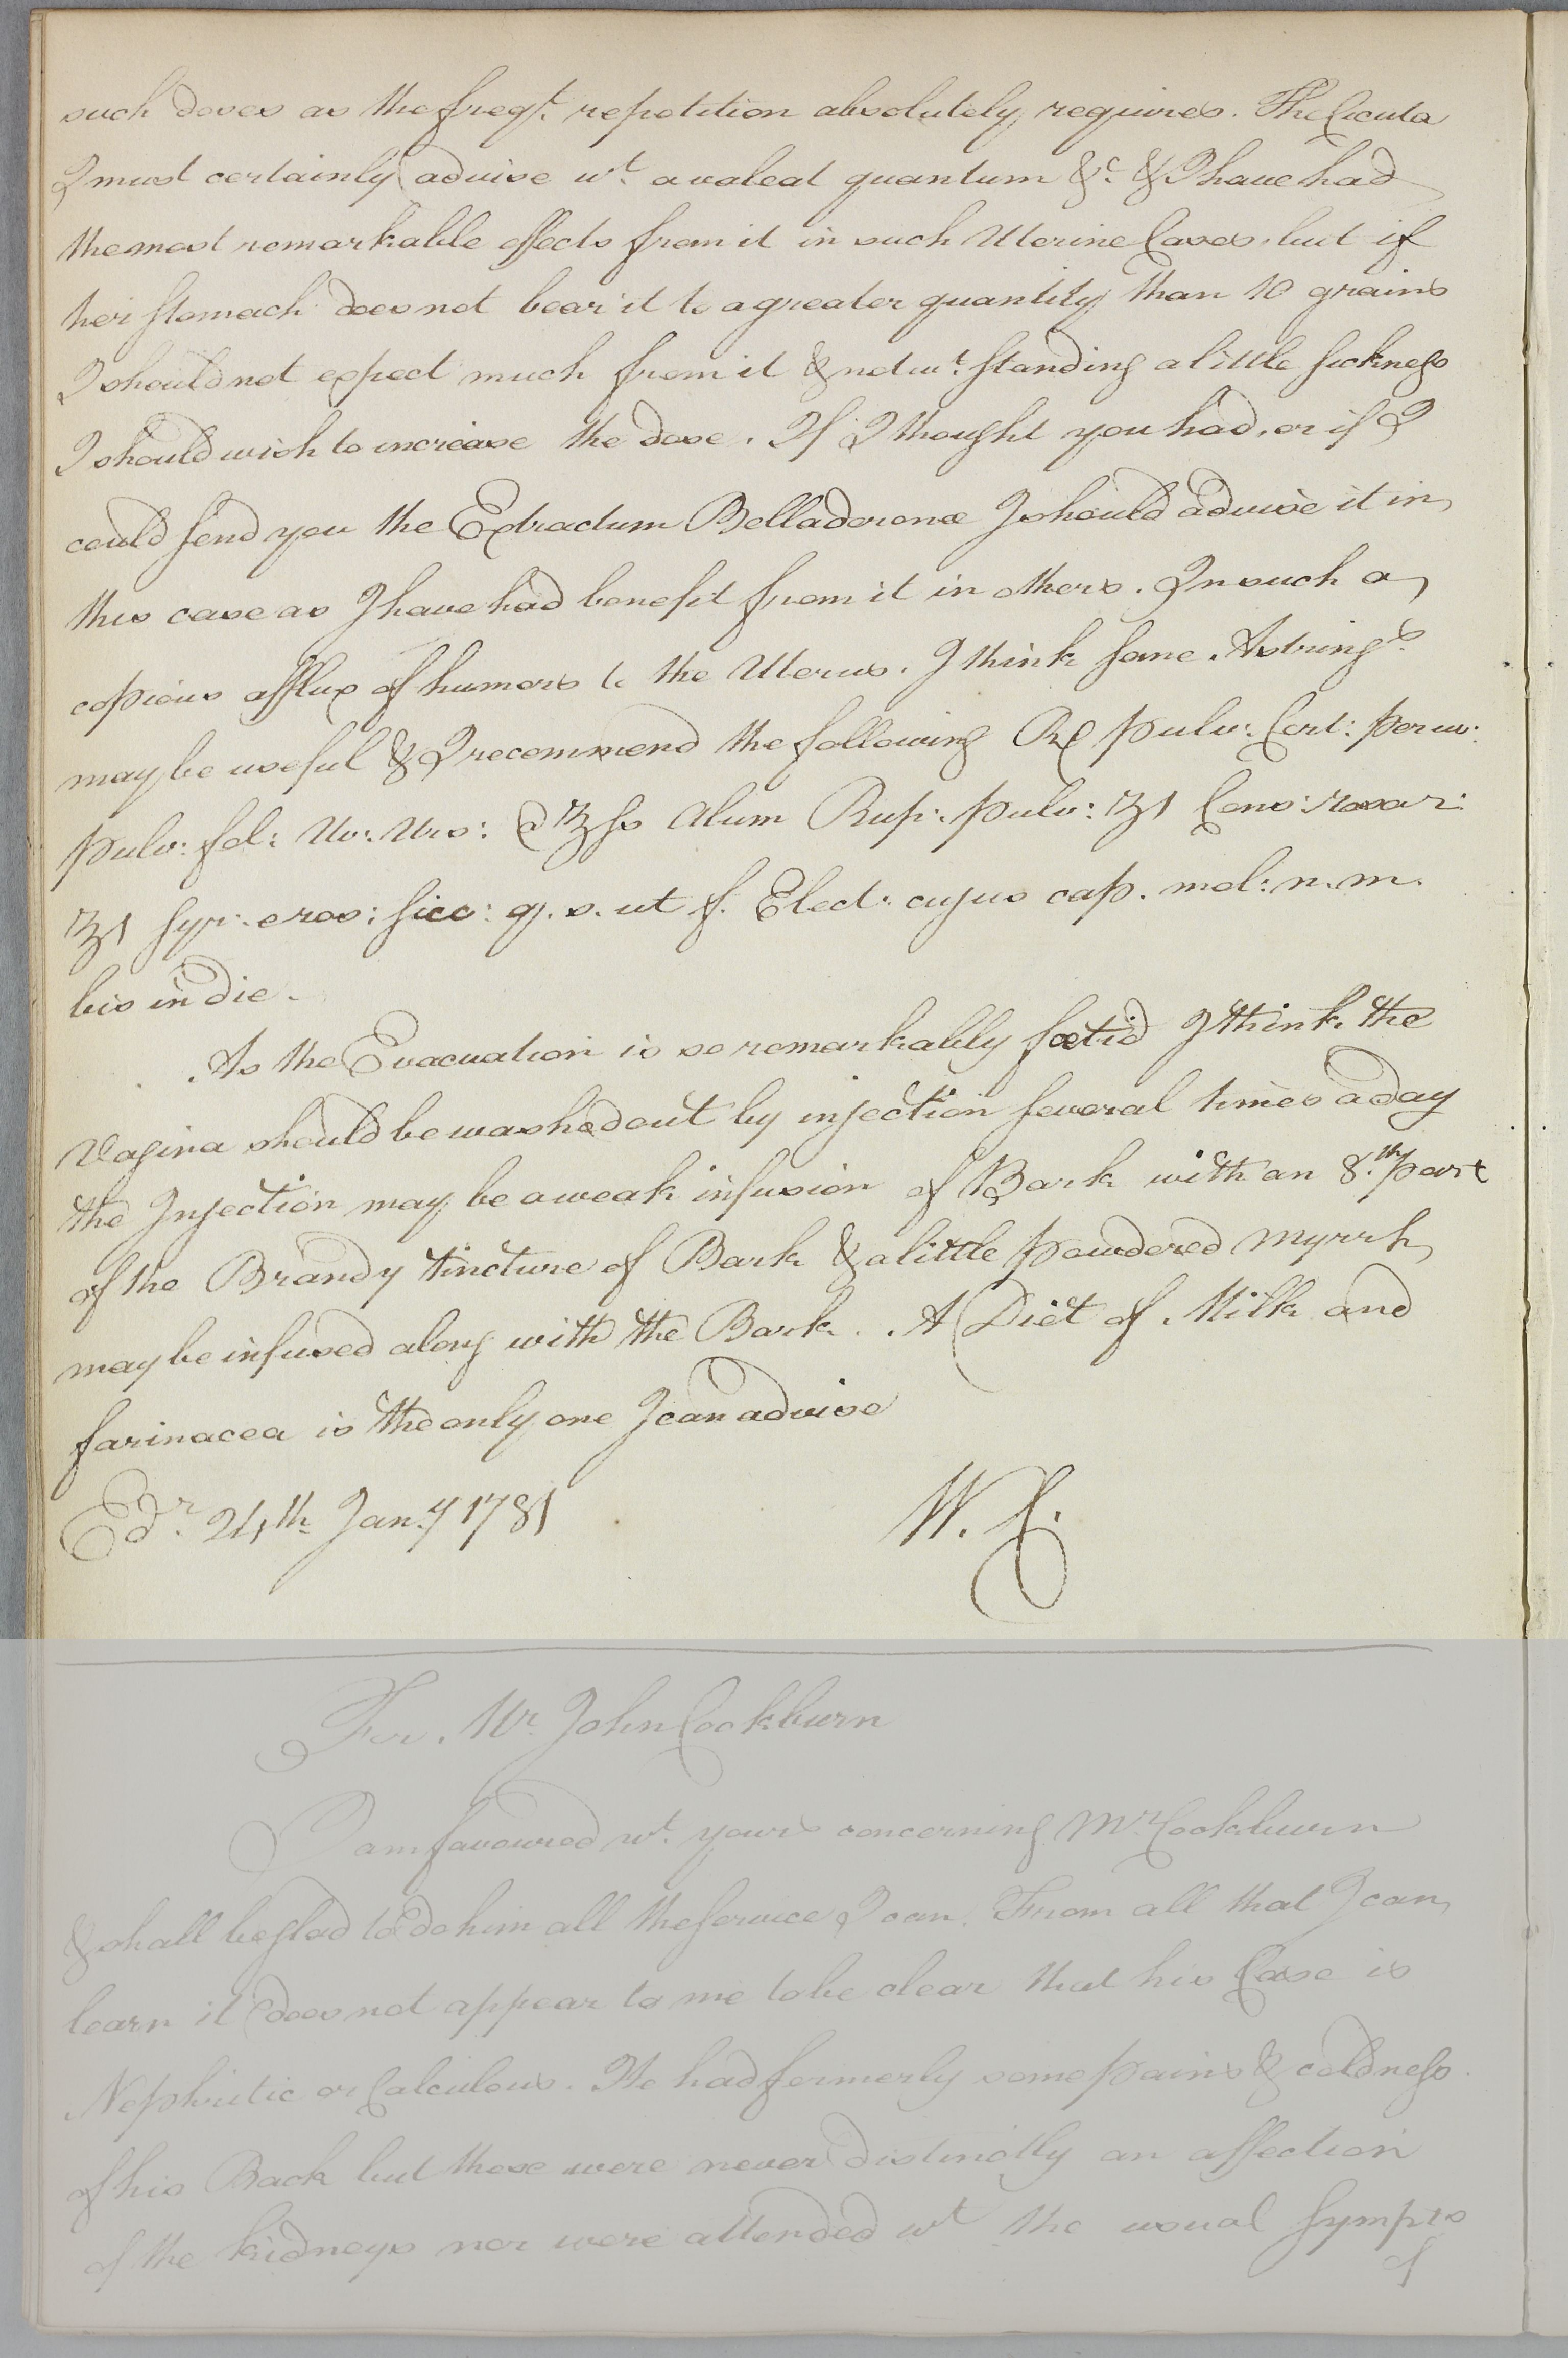 such doses as the freqt. repetition absolutely requires. The Cicuta
I must certainly advise wt. a valeat quantum &c. & I have had
the most remarkable effects from it in such Uterine Cases, but if
her Stomach does not bear it to a greater quantity than 10 grains
I should not expect much from it & notwt. standing a little Sickness
I should wish to increase the dose. If I thought you had, or if I
could send you the Extractum Belladoronæ I should advise it in
this case as I have had benefit from it in others. In such a
copious afflux of humors to the Uterus. I think some Astringts.
may be useful & I recommend the following Rx pulv: Cort: peruv:
pulv: fol: Uv: Urs: a ʒſs Alum Rup: pulv: ʒ1 Cons: rosar:
ʒ1 Syr: e ros: sicc: q. s. ut f. Elect: cujus cap. mol: n. m.
bis in die.
As the Evacuation is so remarkably fœtid I think the
Vagina should be washed out by injection several times a day
the Injection may be a weak infusion of Bark with an 8.th part
of the Brandy tincture of Bark & a little powdered Myrrh
may be infused along with the Bark. A Diet of Milk and
farinacea is the only one I can advise
Edr. 24th Jany 1781
W. C.
For Mr. John Cockburn
I am favoured wt. yours concerning Mr Cockburn
& shall be glad to do him all the service I can. From all that I can
learn it does not appear to me to be clear that his Case is
Nephritic or Calculous. He had formerly some pains & coldness
of his Back but these were never distinctly an affection
of the kidneys nor were attended wt the usual Sympts
of